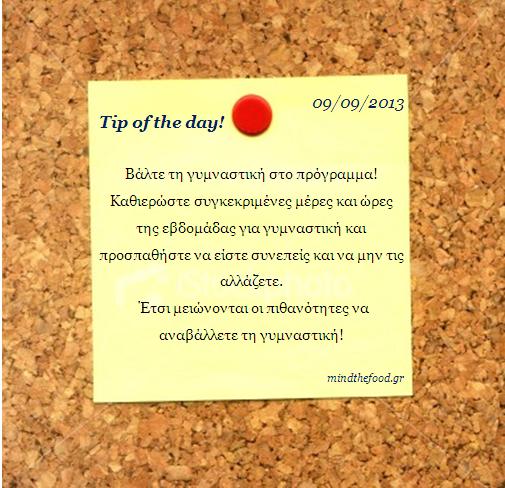 09/09/2013
Tip of the day!
Βάλτε τη γυμναστική στο πρόγραμμα!
Καθιερώστε συγκεκριμένες μέρες και ώρες
της εβδομάδας για γυμναστική και
προσπαθήστε να είστε συνεπείς και να μην τις
αλλάζετε.
Έτσι μειώνονται οι πιθανότητες να
αναβάλλετε τη γυμναστική!
mindthefood.gr